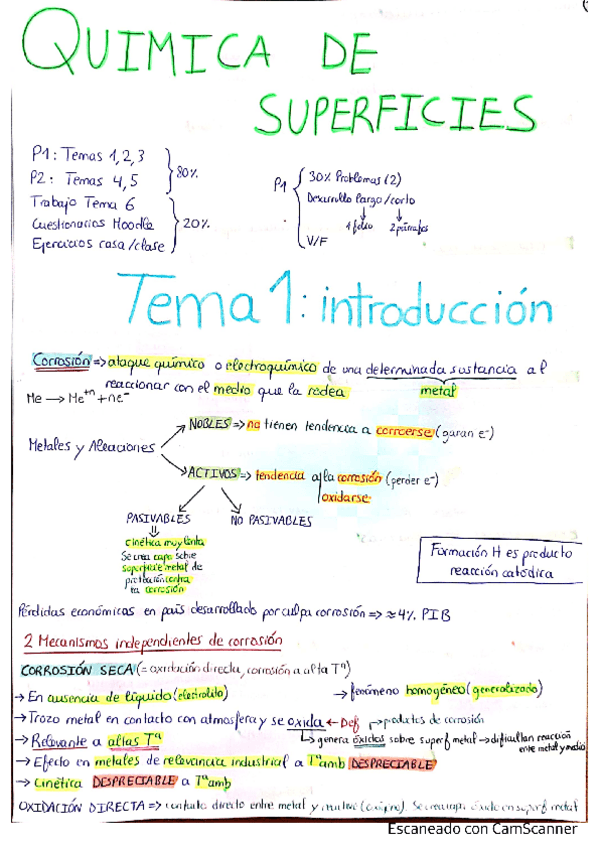 QUIMICA DE
SUPERFICIES
P1: Temas 1,2,3
P2: Temas 4,5
80%
Trabajo Tema 6
Cuestionarios Moodle
Ejercicios casa/clase
20%
P1
30% Problemas (2)
Desarrollo largo/corto
1 folio 2 párrafos
V/F
Tema 1: introducción
Corrosión => ataque químico o electroquímico de una determinada sustancia al
reaccionar con el medio que la rodea
metal
Me → Me+n + ne-
Metales y Aleaciones
NOBLES => no tienen tendencia a corroerse (ganan e-)
ACTIVOS => tendencia a la corrosión (perder e-)
oxidarse
PASIVABLES
NO PASIVABLES
cinética muy lenta
Se crea capa sobre
superficie metal de
protección contra
la corrosión
Formación H es producto
reacción catódica
Pérdidas económicas en país desarrollado por culpa corrosión => ≈4% PIB
2 Mecanismos independientes de corrosión
CORROSIÓN SECA (= oxidación directa, corrosión a alta Tª)
→ En ausencia de líquido (electrolito)
→ fenómeno homogéneo (generalizado)
→ Trozo metal en contacto con atmosfera y se oxida ← Def
productos de corrosión
→ genera óxidos sobre superf metal → dificultan reacción
entre metal y medio
→ Relevante a altas Tª
→ Efecto en metales de relevancia industrial a Tª amb DESPRECIABLE
→ Cinética DESPRECIABLE a Tª amb
OXIDACIÓN DIRECTA => contacto directo entre metal y medio (oxígeno). Se crea capa óxido en superf metal
Escaneado con CamScanner